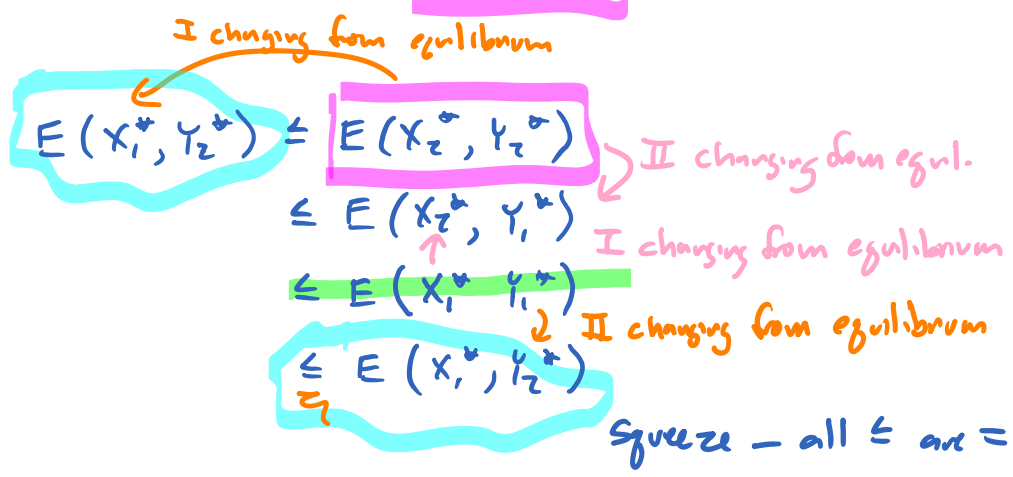 I changing from equilibrium
E (X₁*, Y₂*) ≤ E (X₂*, Y₂*)
II changing from equil.
≤ E (X₂*, Y₁*)
I changing from equilibrium
≤ E (X₁* Y₁*)
II changing from equilibrium
≤ E (X₁*, Y₂*)
squeeze - all ≤ are =